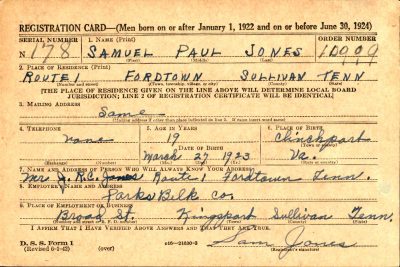 REGISTRATION CARD—(Men born on or after January 1, 1922 and on or before June 30, 1924)
SERIAL NUMBER 1. NAME (Print) ORDER NUMBER
N 178 SAMUEL PAUL JONES
(First) (Middle) (Last)
2. PLACE OF RESIDENCE (Print)
ROUTE 1 FORDTOWN SULLIVAN TENN
(Number and street) (Town, township, village, or city) (County) (State)
[THE PLACE OF RESIDENCE GIVEN ON THE LINE ABOVE WILL DETERMINE LOCAL BOARD
JURISDICTION; LINE 2 OF REGISTRATION CERTIFICATE WILL BE IDENTICAL]
3. MAILING ADDRESS
Same
[Mailing address if other than place indicated on line 2. If same insert word same]
4. TELEPHONE 5. AGE IN YEARS 6. PLACE OF BIRTH
none 19 Clinchport
DATE OF BIRTH (Town or county)
March 27 1923 Va.
(Exchange) (Number) (Mo.) (Day) (Yr.) (State or country)
7. NAME AND ADDRESS OF PERSON WHO WILL ALWAYS KNOW YOUR ADDRESS
Mr J. R. C. Jones Route 1 Fordtown Tenn.
8. EMPLOYER'S NAME AND ADDRESS
Parks Belk Co.
9. PLACE OF EMPLOYMENT OR BUSINESS
Broad St. Kingsport Sullivan Tenn.
(Number and street or R. F. D. number) (Town) (County) (State)
I AFFIRM THAT I HAVE VERIFIED ABOVE ANSWERS AND THAT THEY ARE TRUE.
D. S. S. Form 1
(Revised 6-9-42) (over) Sam Jones
(Registrant's signature)